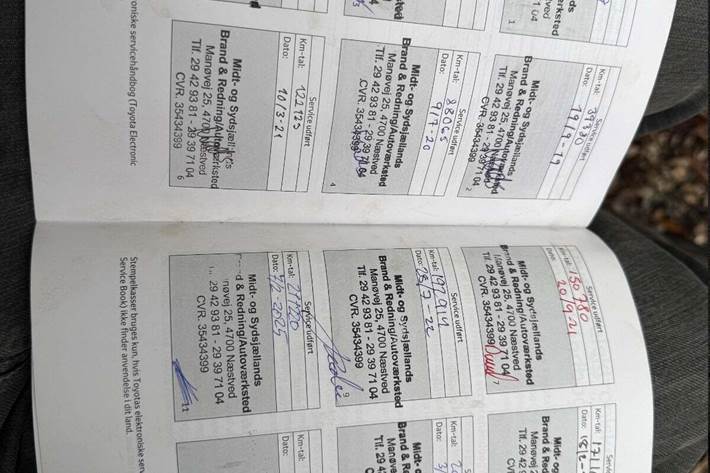 ds
rksted
1 04
1
Service udført
Km-tal:
Dato:
Midt- og Sydsjællands
Brand & Redning/Autoværksted
Manøvej 25, 4700 Næstved
Tlf. 29 42 93 81 - 29 39 71 04
CVR. 35434399
2
Service udført
Km-tal: 150780
Dato: 20/9.21
Midt- og Sydsjællands
Brand & Redning/Autoværksted
Manøvej 25, 4700 Næstved
Tlf. 29 42 93 81 - 29 39 71 04
CVR. 35434399
7
Km-tal: 174
Dato:
Midt-
Brand &
3
Service udført
Km-tal: 88065
Dato: 9/7-20
Midt- og Sydsjællands
Brand & Redning/Autoværksted
Manøvej 25, 4700 Næstved
Tlf. 29 42 93 81 - 29 39 71 04
CVR. 35434399
4
Service udført
Km-tal: 197914
Dato: 23/7-22
Midt- og Sydsjællands
Brand & Redning/Autoværksted
Manøvej 25, 4700 Næstved
Tlf. 29 42 93 81 - 29 39 71 04
CVR. 35434399
9
Km-tal:
Dato:
Midt-
Brand & R
Service udført
Km-tal: 122123
Dato: 10/3-21
Midt- og Sydsjællands
Brand & Redning/Autoværksted
Manøvej 25, 4700 Næstved
Tlf. 29 42 93 81 - 29 39 71 04
CVR. 35434399
6
Service udført
Km-tal: 247220
Dato: 7/2-2024
Midt- og Sydsjællands
d & Redning/Autoværksted
nøvej 25, 4700 Næstved
29 42 93 81 - 29 39 71 04
CVR. 35434399
11
Km-tal:
Dato:
roniske servicehåndbog (Toyota Electronic
Stempelkasser bruges kun, hvis Toyotas elektroniske serv
Service Book) ikke finder anvendelse i dit land.